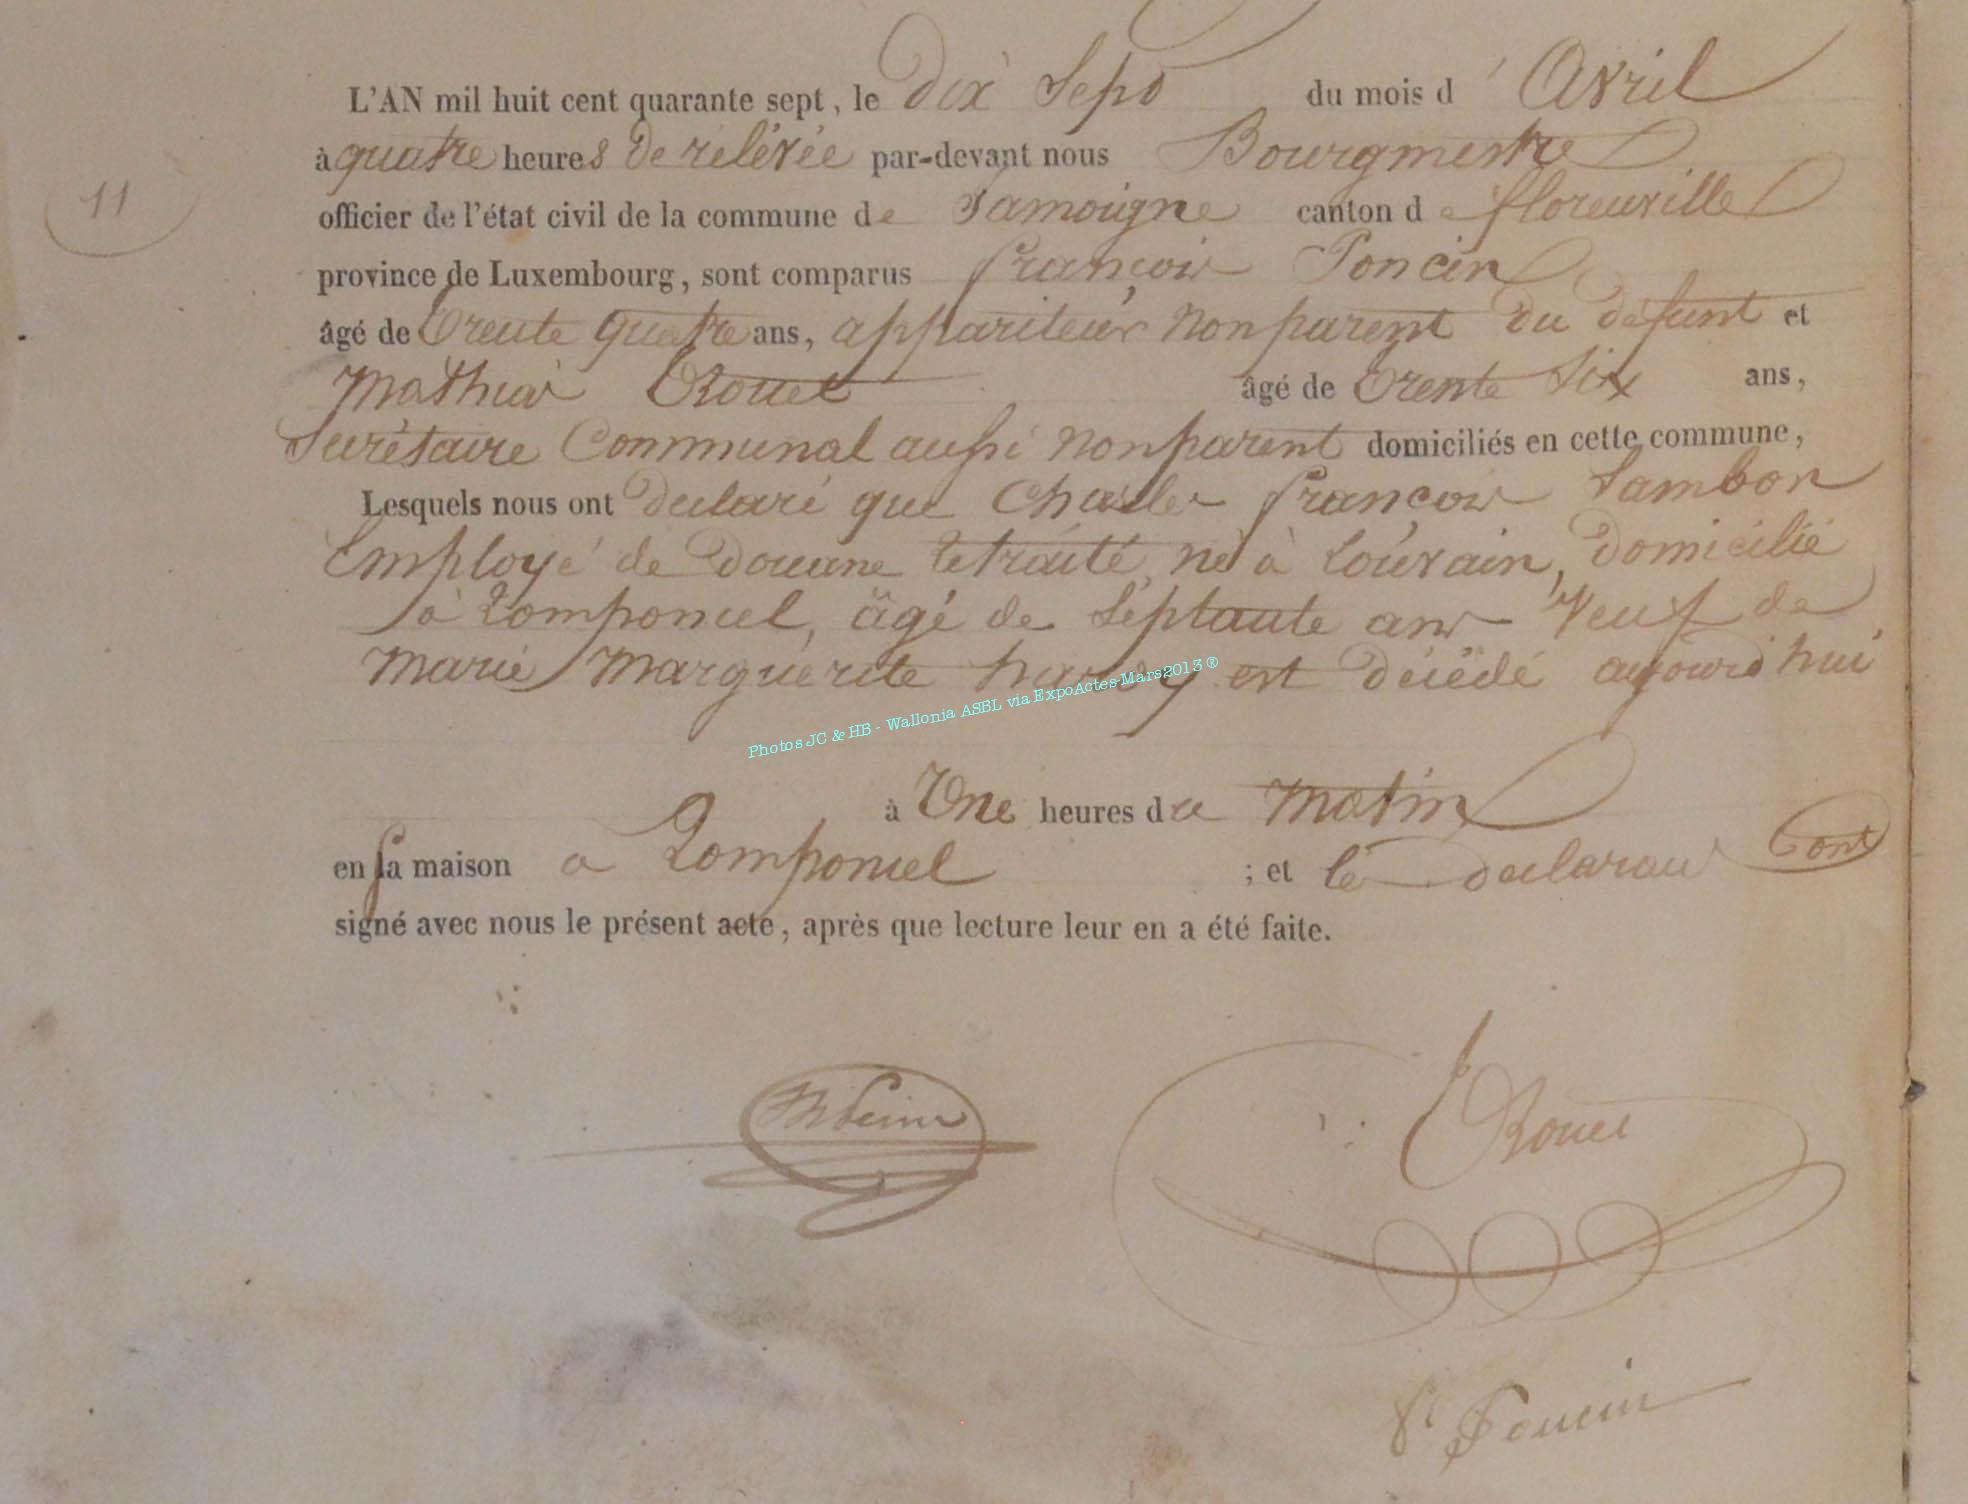 L'AN mil huit cent quarante sept, le Dix Sept du mois d'Avril
à quatre heures de rélévée par-devant nous Bourgmestre
11
officier de l'état civil de la commune de Jamoigne canton de florenville
province de Luxembourg, sont comparus françois Poncin
âgé de trente quatre ans, appariteur non parent du défunt et
Mathias Rouet âgé de trente Six ans,
Secrétaire Communal aussi non parent domiciliés en cette commune,
Lesquels nous ont declaré que Charles françois Lambon
Employé de Douane retraité, né à Louvain, domicilié
à Romponcel, âgé de Septante ans Veuf de
Marie Marguerite hardy est décédé aujourd'hui
Photos JC & HB - Wallonia ASBL via ExpoActes-Mars2013 ®
à Une heures du Matin
en sa maison a Romponcel ; et les declarans ont
signé avec nous le présent acte, après que lecture leur en a été faite.
Rouet
fs Poncin